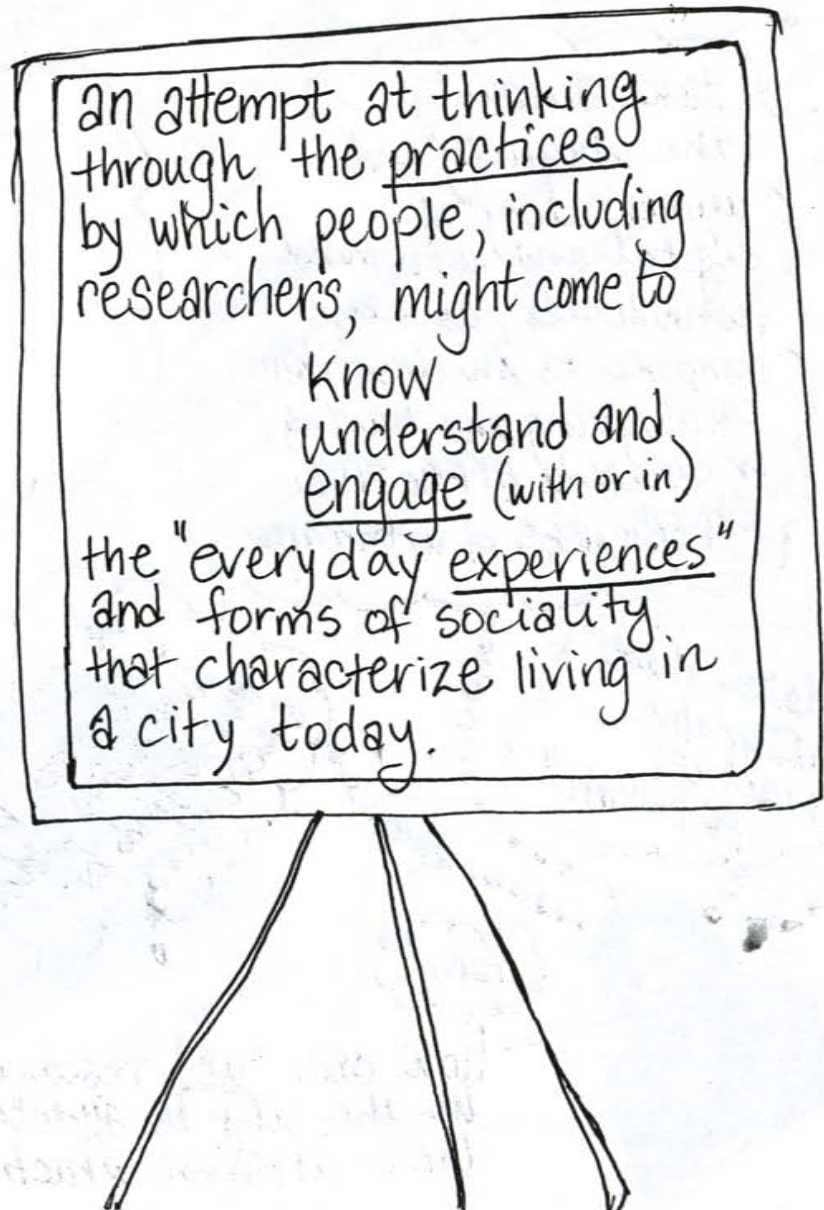 an attempt at thinking
through the practices
by which people, including
researchers, might come to
know
understand and
engage (with or in)
the "everyday experiences"
and forms of sociality
that characterize living in
a city today.